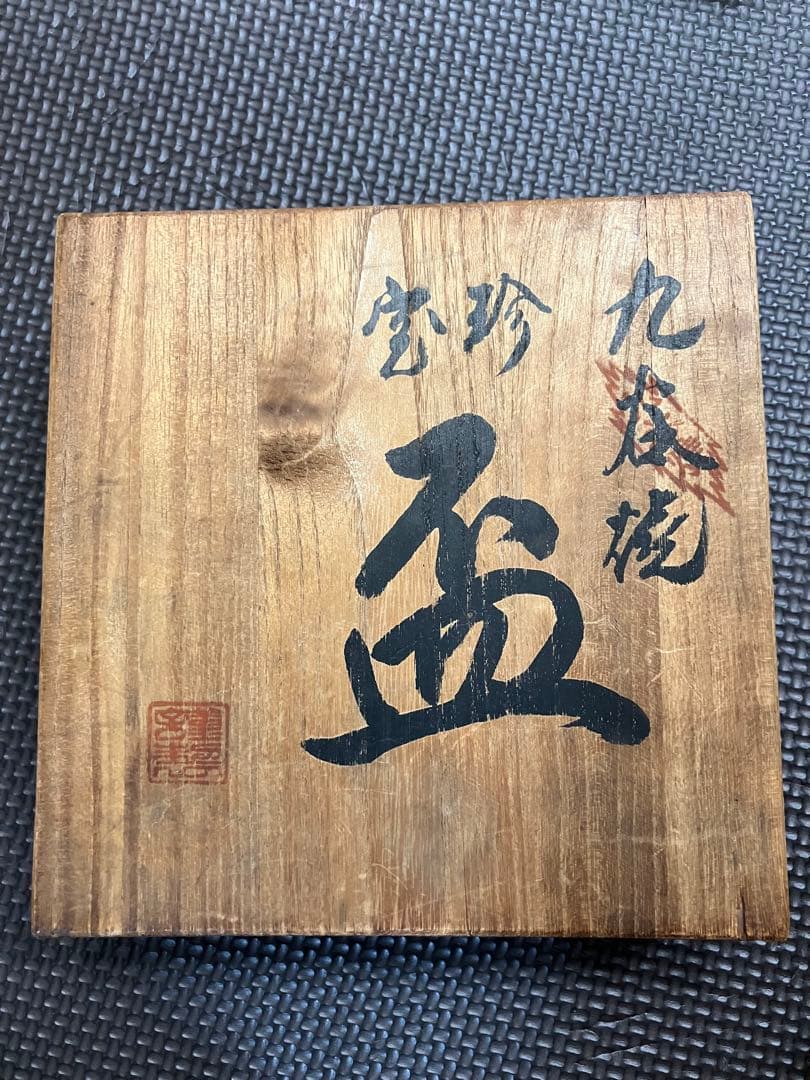 九谷焼
珍宝
盃